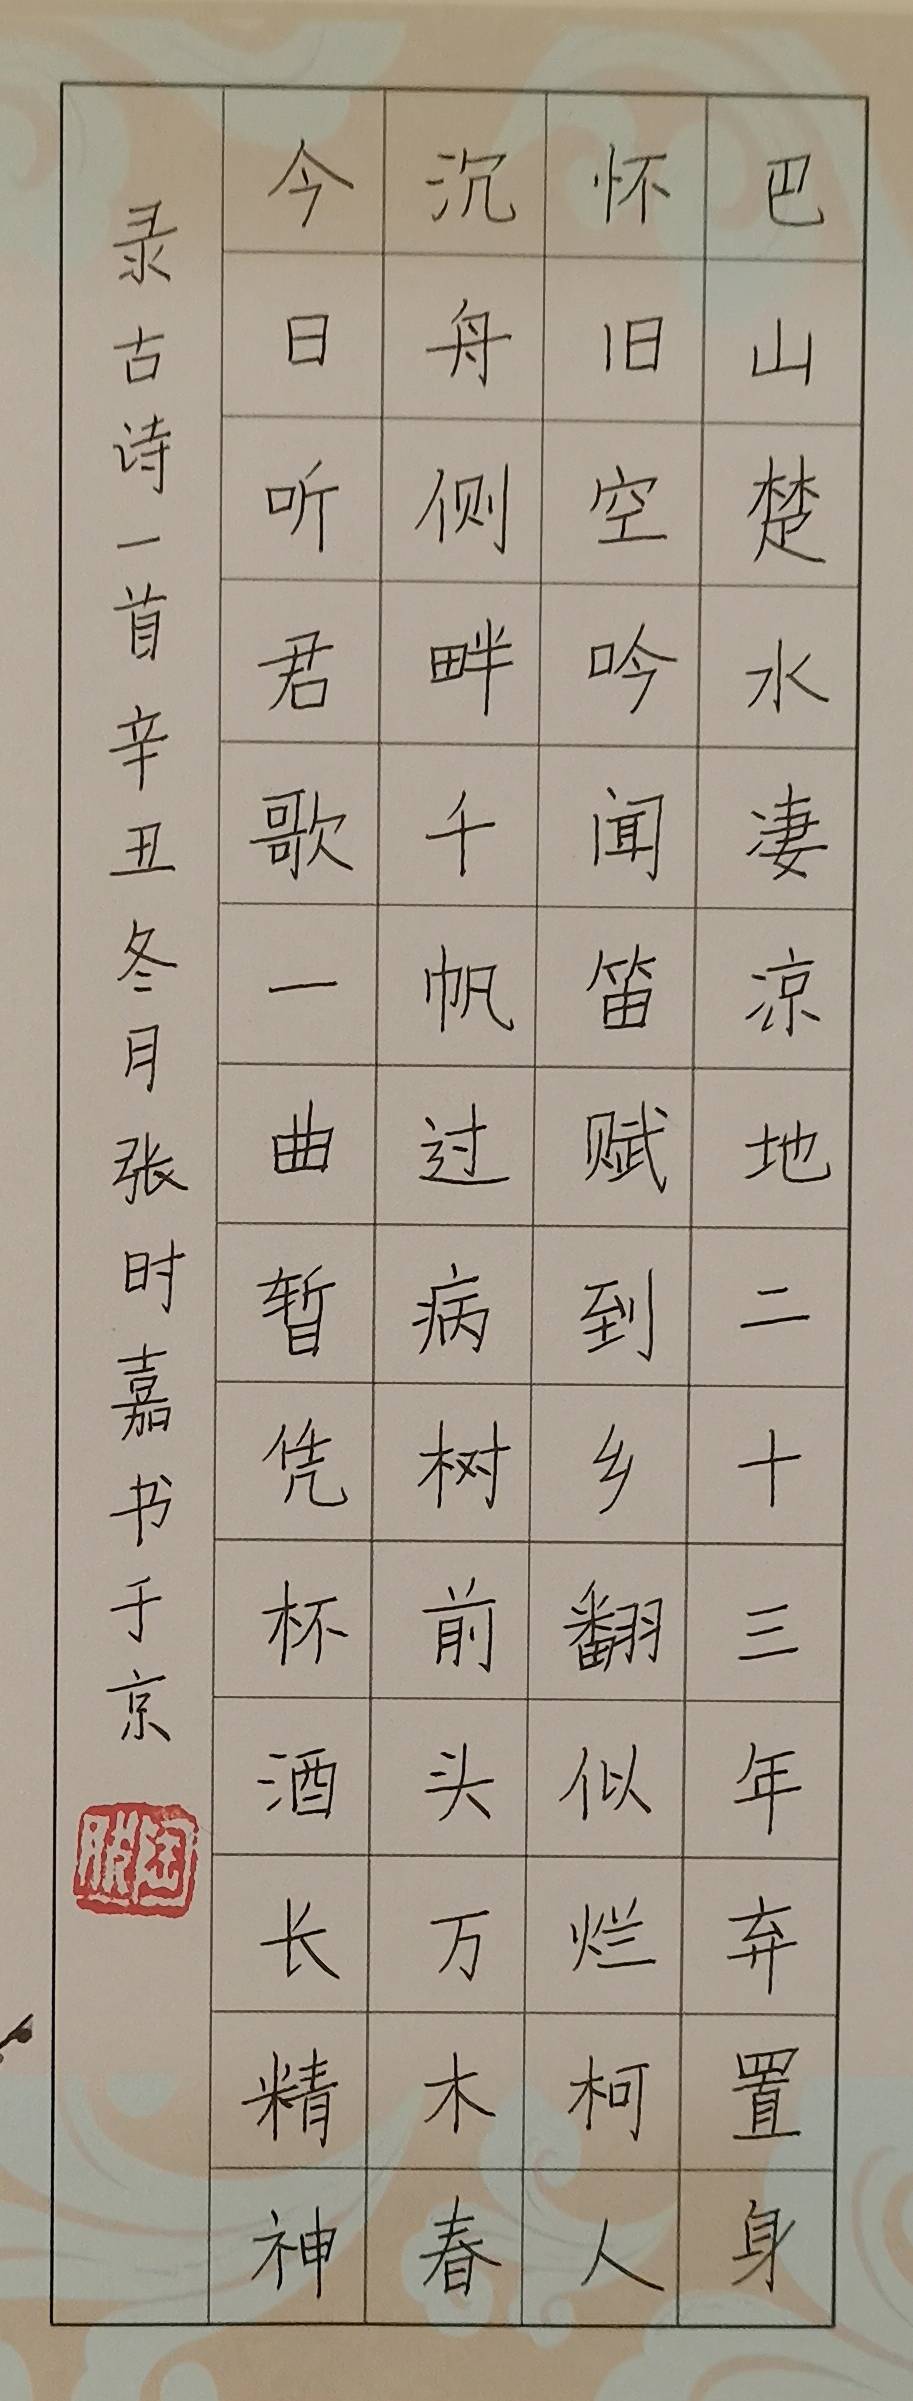 巴山楚水凄凉地二十三年弃置身
怀旧空吟闻笛赋到乡翻似烂柯人
沉舟侧畔千帆过病树前头万木春
今日听君歌一曲暂凭杯酒长精神
录古诗一首辛丑冬月张时嘉书于京